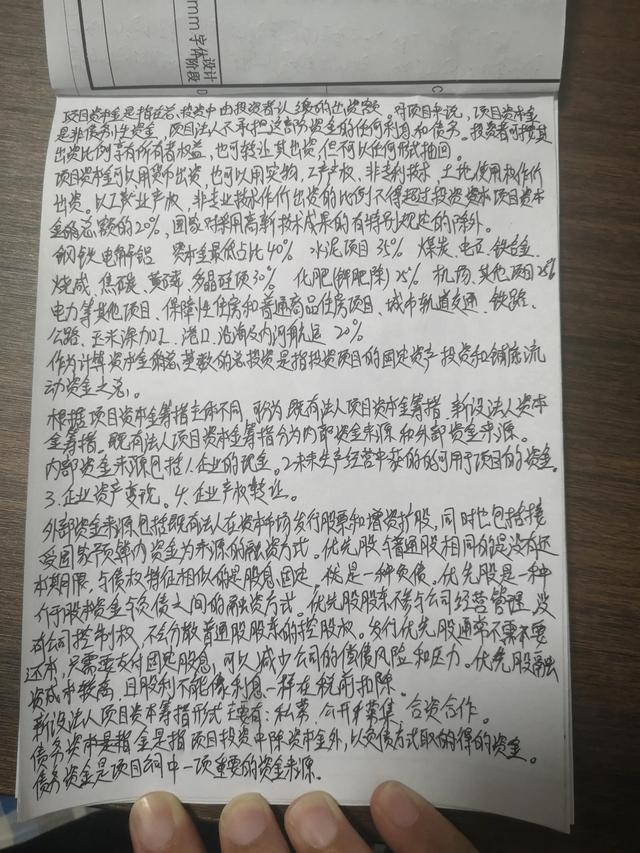 设计
阶段
mm 字体
D
C
项目资本金是指在总投资中由投资者认缴的出资额。对项目来说，项目资本金
是非债务性资金，项目法人不承担这部分资金的任何利息和债务。投资者可按其
出资比例享有所有者权益，也可转让其出资，但不可以任何形式抽回。
项目资本金可以用货币出资，也可以用实物、工业产权、非专利技术、土地使用权作价
出资。以工业产权、非专业技术作价出资的比例不得超过投资资本项目资本
金总额的20%，国家对采用高新技术成果的有特别规定的除外。
钢铁电解铝 资本金最低占比40% 水泥项目35% 煤炭、电石、铁合金、
烧碱、焦碳、黄磷、多晶硅项30% 化肥(钾肥除)25% 机场、其他项目25%
电力等其他项目、保障性住房和普通商品住房项目、城市轨道交通、铁路、
公路、玉米深加工、港口、沿海及内河航运 20%
作为计算资本金总基数的总投资是指投资项目的固定资产投资和铺底流
动资金之总。
根据项目资本金筹措主体不同，可分为既有法人项目资本金筹措、新设法人资本
金筹措。既有法人项目资本金筹措分为内部资金来源和外部资金来源。
内部资金来源包括1.企业的现金。2.未来生产经营中获的的可用于项目的资金。
3.企业资产变现。4.企业产权转让。
外部资金来源包括既有法人在资本市场发行股票和增资扩股，同时也包括接
受国家预算内资金为来源的融资方式。优先股与普通股相同的是没有还
本期限，与债权特征相似的是股息固定。优是一种负债。优先股是一种
介于股本资金与负债之间的融资方式。优先股股东不参与公司经营管理，没
有公司控制权，不会分散普通股股东的控股权。发行优先股通常不需不要
还本，只需要支付固定股息，可以减少公司的偿债风险和压力。优先股融
资成本较高，且股利不能像利息一样在税前扣除。
新设法人项目资本筹措形式主要有：私募、公开募集、合资合作。
债务资本是指金是指项目投资中除资本金外，以负债方式取的得的资金。
债务资金是项目中一项重要的资金来源。